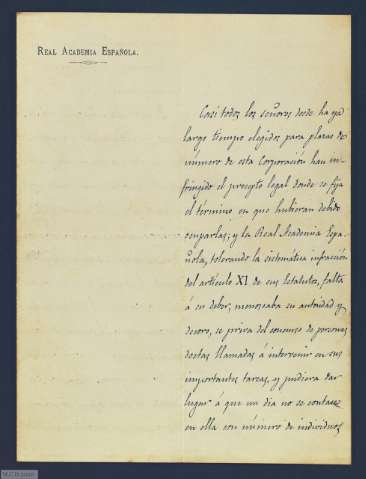 REAL ACADEMIA ESPAÑOLA.
Casi todos los señores desde ha ya
largo tiempo elegidos para plazas de
número de esta Corporación han in-
fringido el precepto legal donde se fija
el término en que hubieran debido
ocuparlas; y la Real Academia Espa-
ñola, tolerando la sistemática infracción
del artículo XI de sus Estatutos, falta
á su deber, menoscaba su autoridad y
decoro, se priva del concurso de personas
doctas llamadas á intervenir en sus
importantes tareas, y pudiera dar
lugar á que un día no se contase
en ella con número de individuos